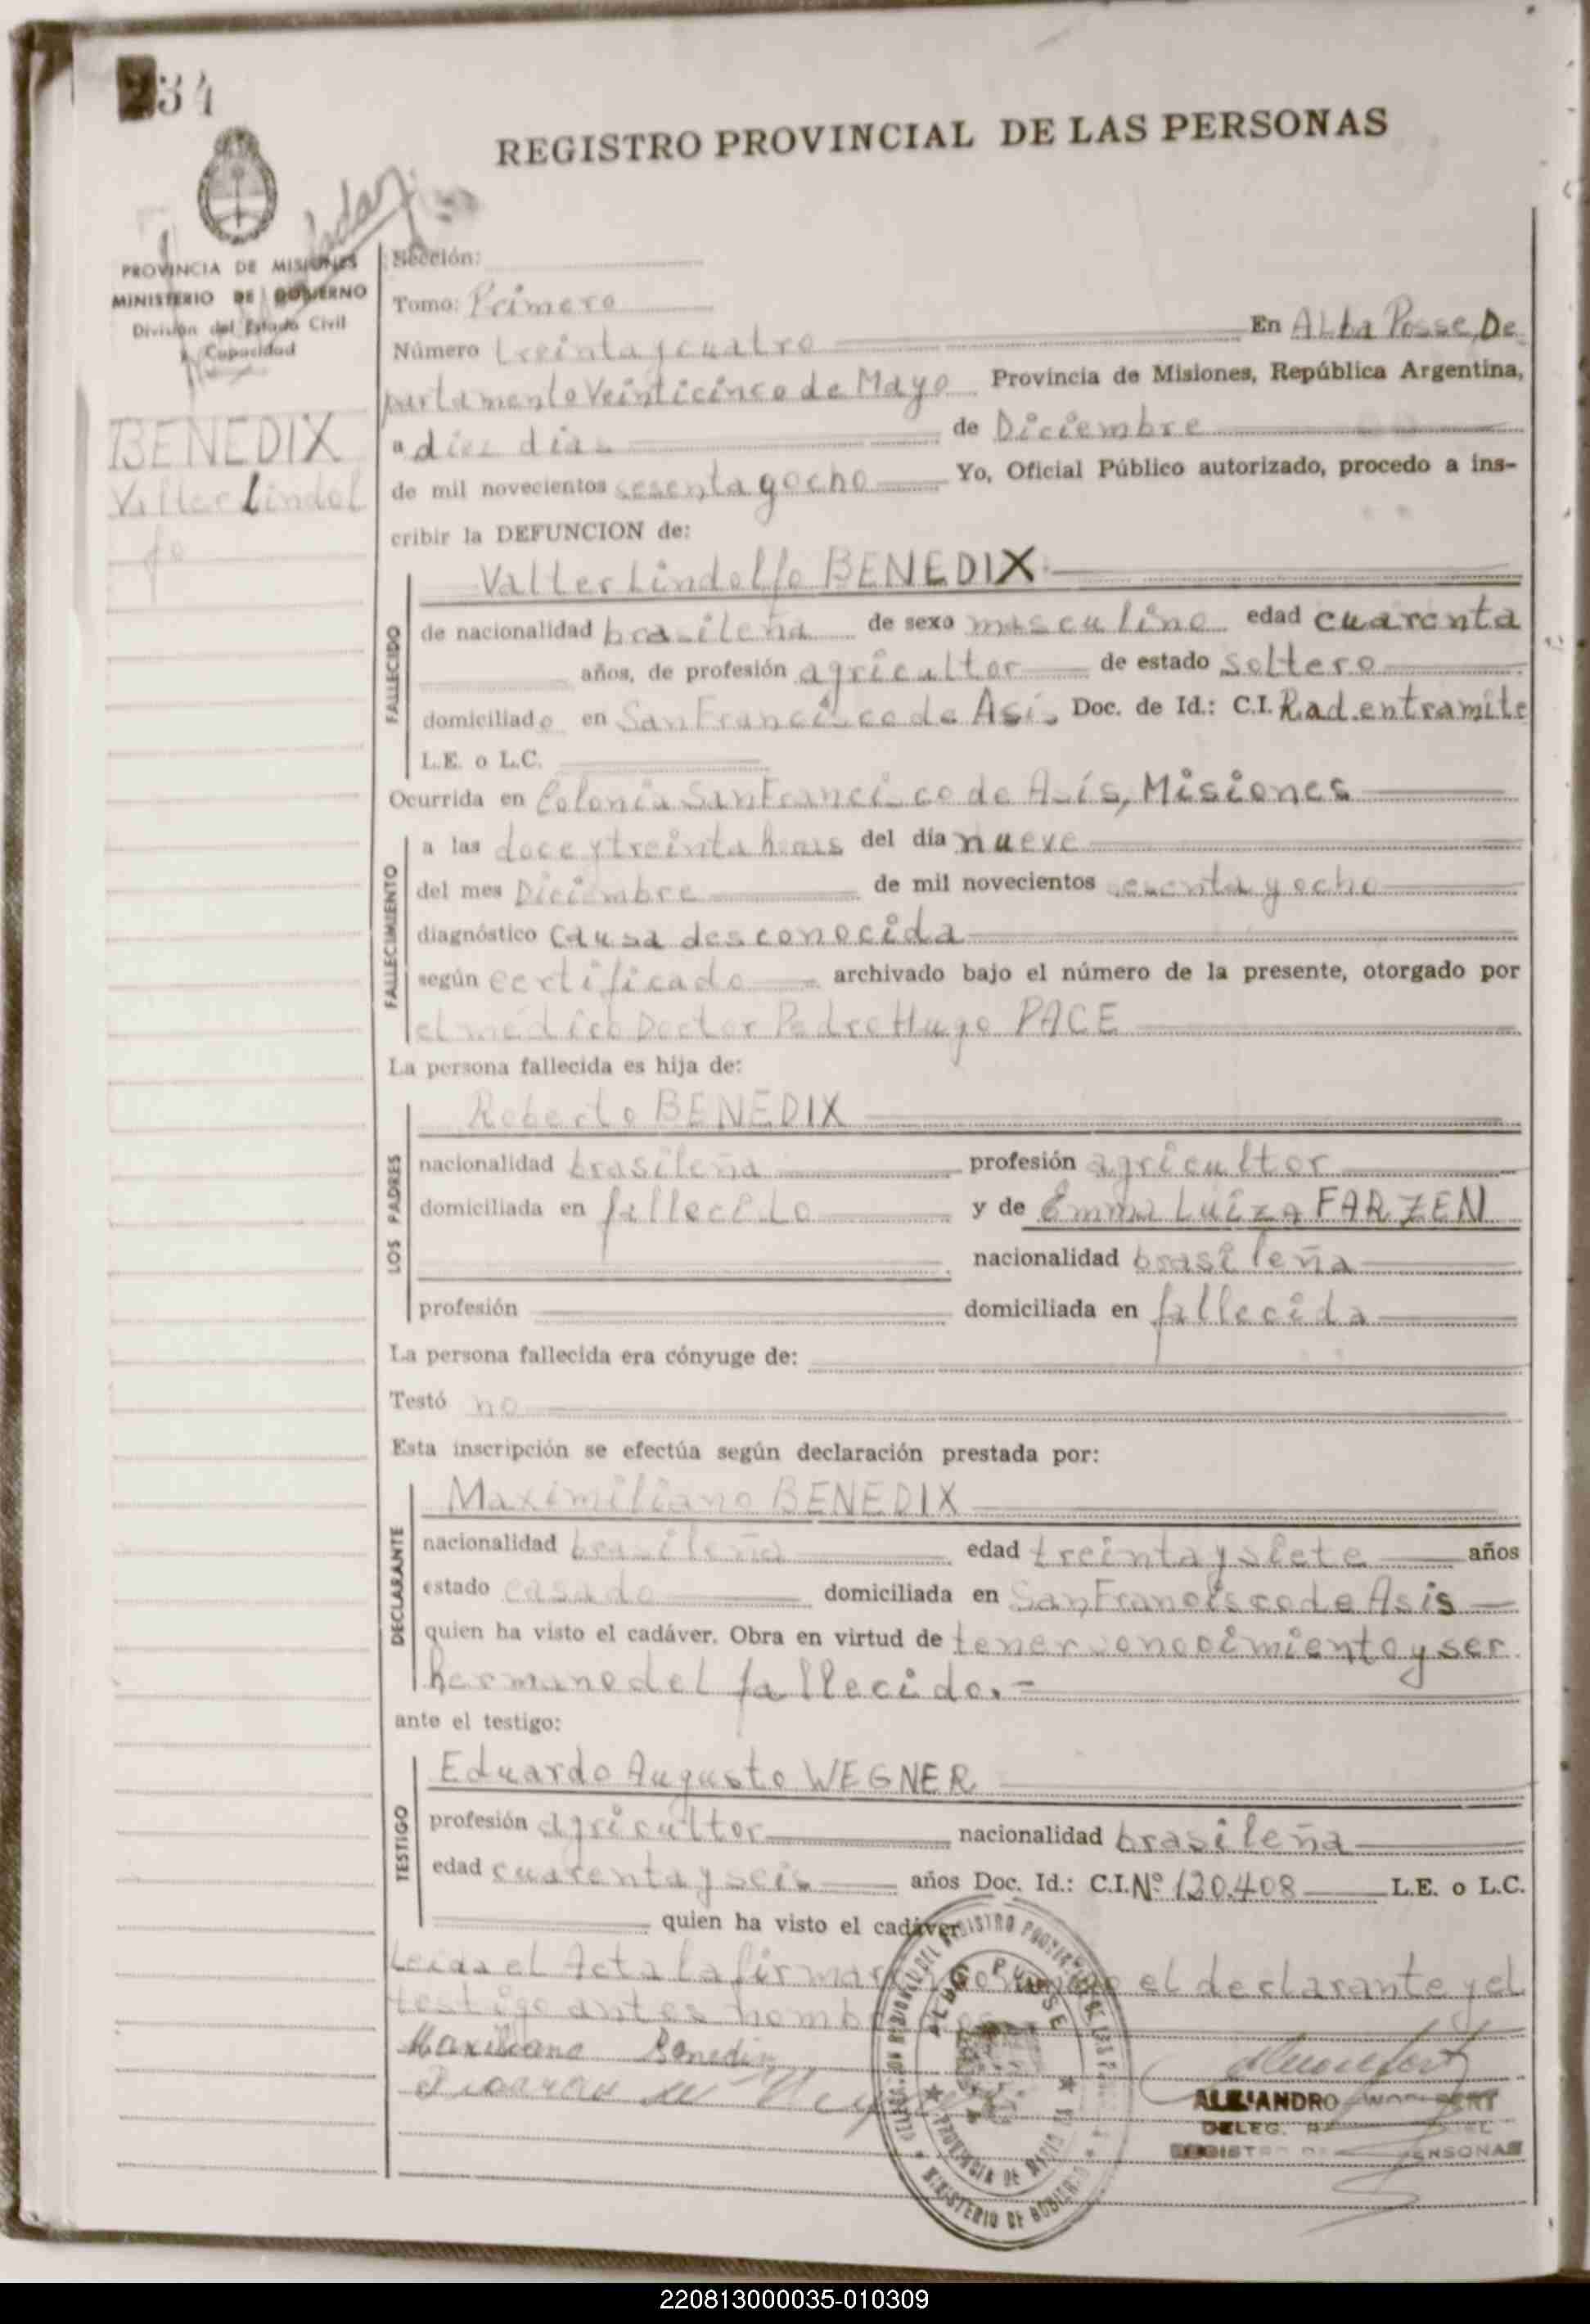 34
REGISTRO PROVINCIAL DE LAS PERSONAS
PROVINCIA DE MISIONES
MINISTERIO DE GOBIERNO
División del Estado Civil
y Capacidad
BENEDIX
Valter Lindol
fo
Sección:
Tomo: Primero
Número treinta y cuatro En Alba Posse, De
partamento Veinticinco de Mayo Provincia de Misiones, República Argentina,
a diez dias de Diciembre
de mil novecientos sesenta y ocho Yo, Oficial Público autorizado, procedo a ins-
cribir la DEFUNCION de:
Valter Lindolfo BENEDIX
FALLECIDO
de nacionalidad brasileña de sexo masculino edad cuarenta
años, de profesión agricultor de estado soltero
domiciliado en San Francisco de Asis Doc. de Id.: C.I. Rad. en tramite
L.E. o L.C.
Ocurrida en Colonia San Francisco de Asís, Misiones
FALLECIMIENTO
a las doce y treinta horas del día nueve
del mes Diciembre de mil novecientos sesenta y ocho
diagnóstico causa desconocida
según certificado archivado bajo el número de la presente, otorgado por
el médico Doctor Pedro Hugo PACE
La persona fallecida es hija de:
Roberto BENEDIX
LOS PADRES
nacionalidad brasileña profesión agricultor
domiciliada en fallecido y de Emma Luiza FARZEN
nacionalidad brasileña
profesión domiciliada en fallecida
La persona fallecida era cónyuge de:
Testó no
Esta inscripción se efectúa según declaración prestada por:
Maximiliano BENEDIX
DECLARANTE
nacionalidad brasileña edad treinta y siete años
estado casado domiciliada en San Francisco de Asis
quien ha visto el cadáver. Obra en virtud de tener conocimiento y ser
hermano del fallecido.=
ante el testigo:
Eduardo Augusto WEGNER
TESTIGO
profesión agricultor nacionalidad brasileña
edad cuarenta y seis años Doc. Id.: C.I. Nº 130.408 L.E. o L.C.
quien ha visto el cadáver
Leida el Acta la firman conmigo el declarante y el
testigo antes
Maxiliano Benedix
ALEJANDRO
DELEG.
PROVINCIA DE MISIONES
MINISTERIO DE GOBIERNO
220813000035-010309